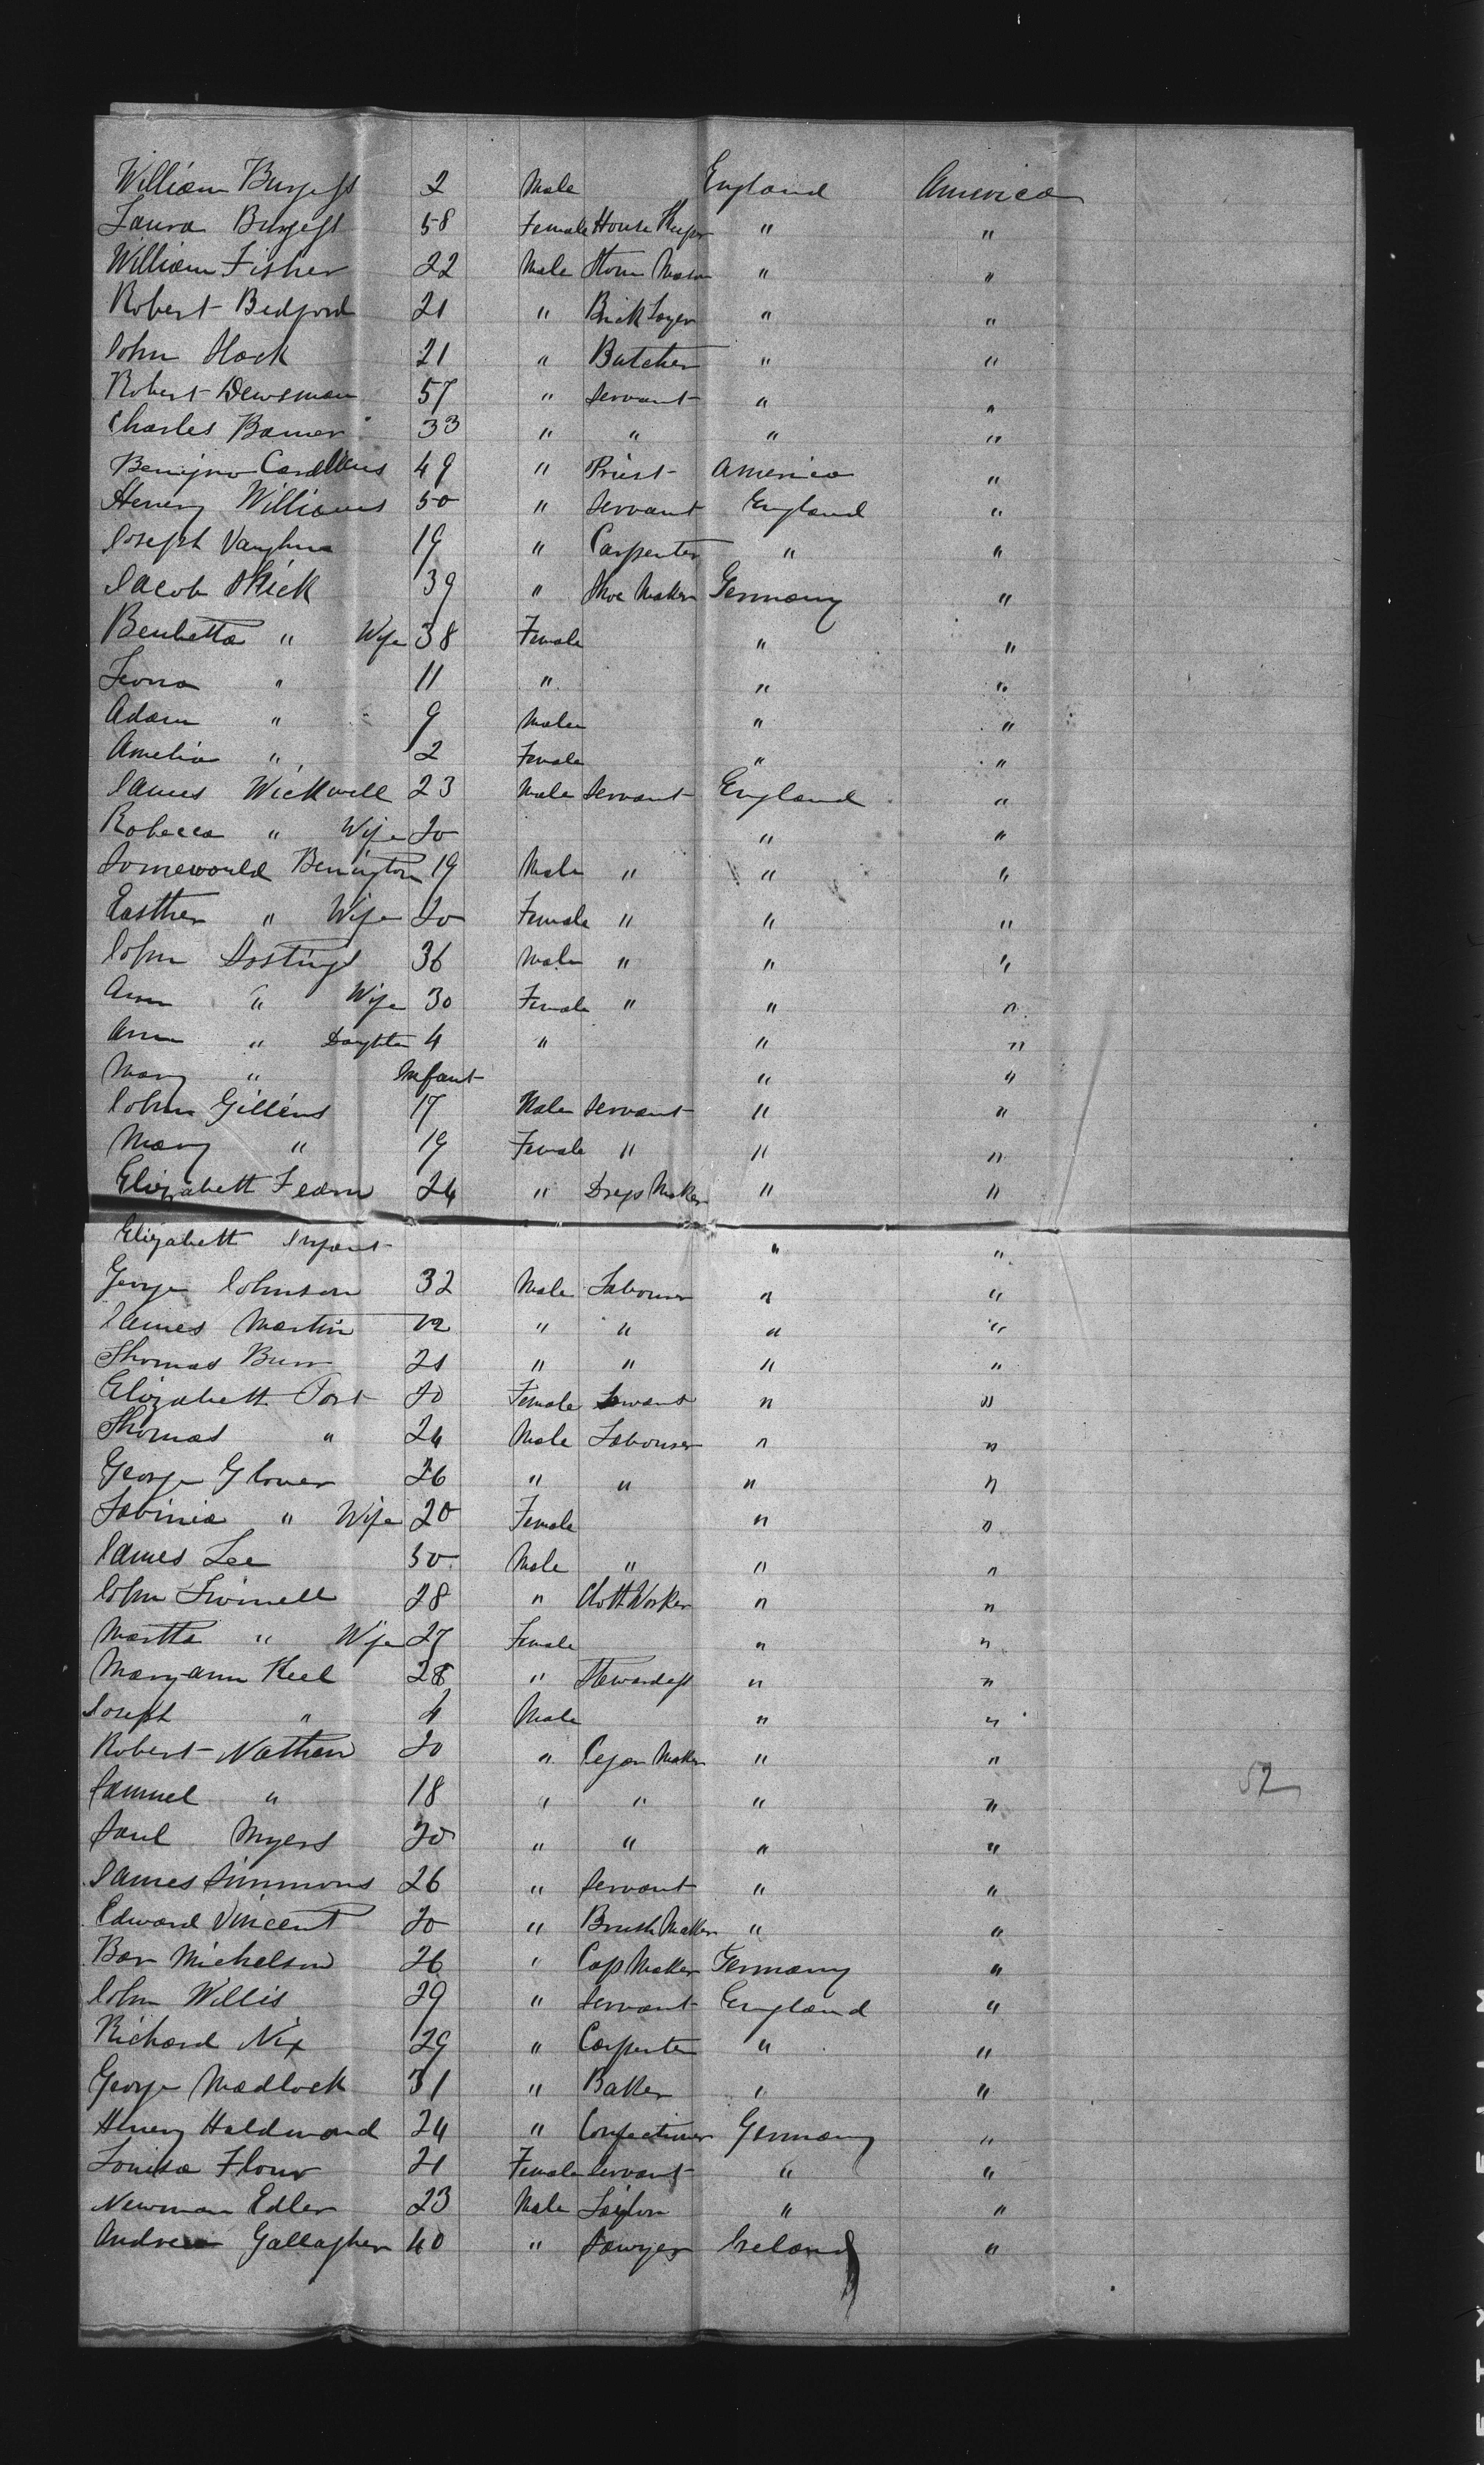 William Burgess 2 Male England America
Laura Burgess 58 Female House Keeper " "
William Fisher 22 Male Stone Mason " "
Robert Bedford 21 " Brick Layer " "
John Slack 21 " Butcher " "
Robert Dewsman 57 " Servant " "
Charles Bamer 33 " " " "
Benigno Cardenus 49 " Priest America "
Henery Williams 50 " Servant England "
Joseph Vaughna 19 " Carpenter " "
Jacob Shick 39 " Shoe Maker Germany "
Benhetta " Wife 38 Female " "
Leona " 11 " " "
Adam " 9 Male " "
Amelia " 2 Female " "
James Wickwell 23 Male Servant England "
Robecca " Wife 20 " "
Somewould Benington 19 Male " " "
Easther " Wife 20 Female " " "
John Hostings 36 Male " " "
Ann " Wife 30 Female " " "
Ann " Daughter 4 " " "
Mary " Infant " "
John Gillins 17 Male Servant " "
Mary " 19 Female " " "
Elizabett Fearn 24 " Dress Maker " "
Elizabett Infant " "
George Johnson 32 Male Labourer " "
James Martin 22 " " " "
Thomas Burr 21 " " " "
Elizabett Port 20 Female Servant " "
Thomas " 24 Male Labourer " "
George Glover 26 " " " "
Lavinia " Wife 20 Female " "
James Lee 30 Male " " "
John Swinnell 28 " Cloth Worker " "
Martta " Wife 27 Female " "
Mary ann Keel 28 " Stewardess " "
Joseph " 4 Male " "
Robert Nathan 20 " Cegar Maker " "
Samuel " 18 " " " " 52
Saul Myers 20 " " " "
James Simmons 26 " Servant " "
Edward Vincent 20 " Brush Maker " "
Bar Michelson 26 " Cap Maker Germany "
John Willis 29 " Servant England "
Richard Nix 29 " Carpenter " "
George Madlock 31 " Baker " "
Henery Haldmand 24 " Confectiner Germany "
Louisa Flour 21 Female Servant " "
Newman Edler 23 Male Taylor " "
Andrew Gallagher 40 " Sawyer Ireland "